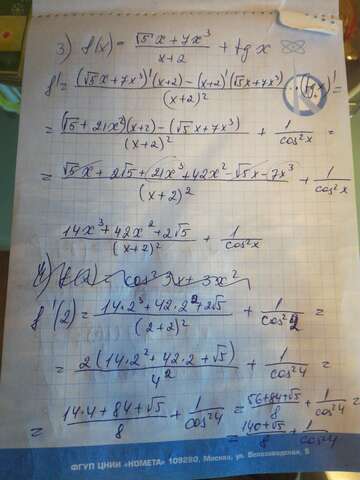 3) f(x) = (√5 x + 7x³)/(x+2) + tg x
f' = ((√5x + 7x³)'(x+2) − (x+2)'(√5x + 7x³))/(x+2)² + (tg x)' =
= ((√5 + 21x²)(x+2) − (√5x + 7x³))/(x+2)² + 1/cos²x =
= (√5x + 2√5 + 21x³ + 42x² − √5x − 7x³)/(x+2)² + 1/cos²x
(14x³ + 42x² + 2√5)/(x+2)² + 1/cos²x
f'(2) = (14·2³ + 42·2² + 2√5)/(2+2)² + 1/cos²2 =
= 2(14·2² + 42·2 + √5)/4² + 1/cos²4 =
= (14·4 + 84 + √5)/8 + 1/cos²4 = (56+84+√5)/8 + 1/cos²4 =
= (140+√5)/8 + 1/cos²4
ФГУП ЦНИИ «КОМЕТА» 109280, Москва, ул. Велозаводская, 5